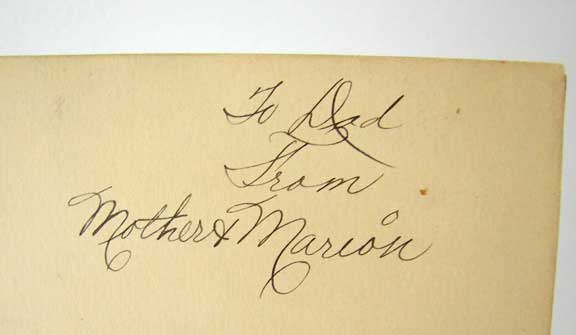 To Dad
From
Mother & Marion